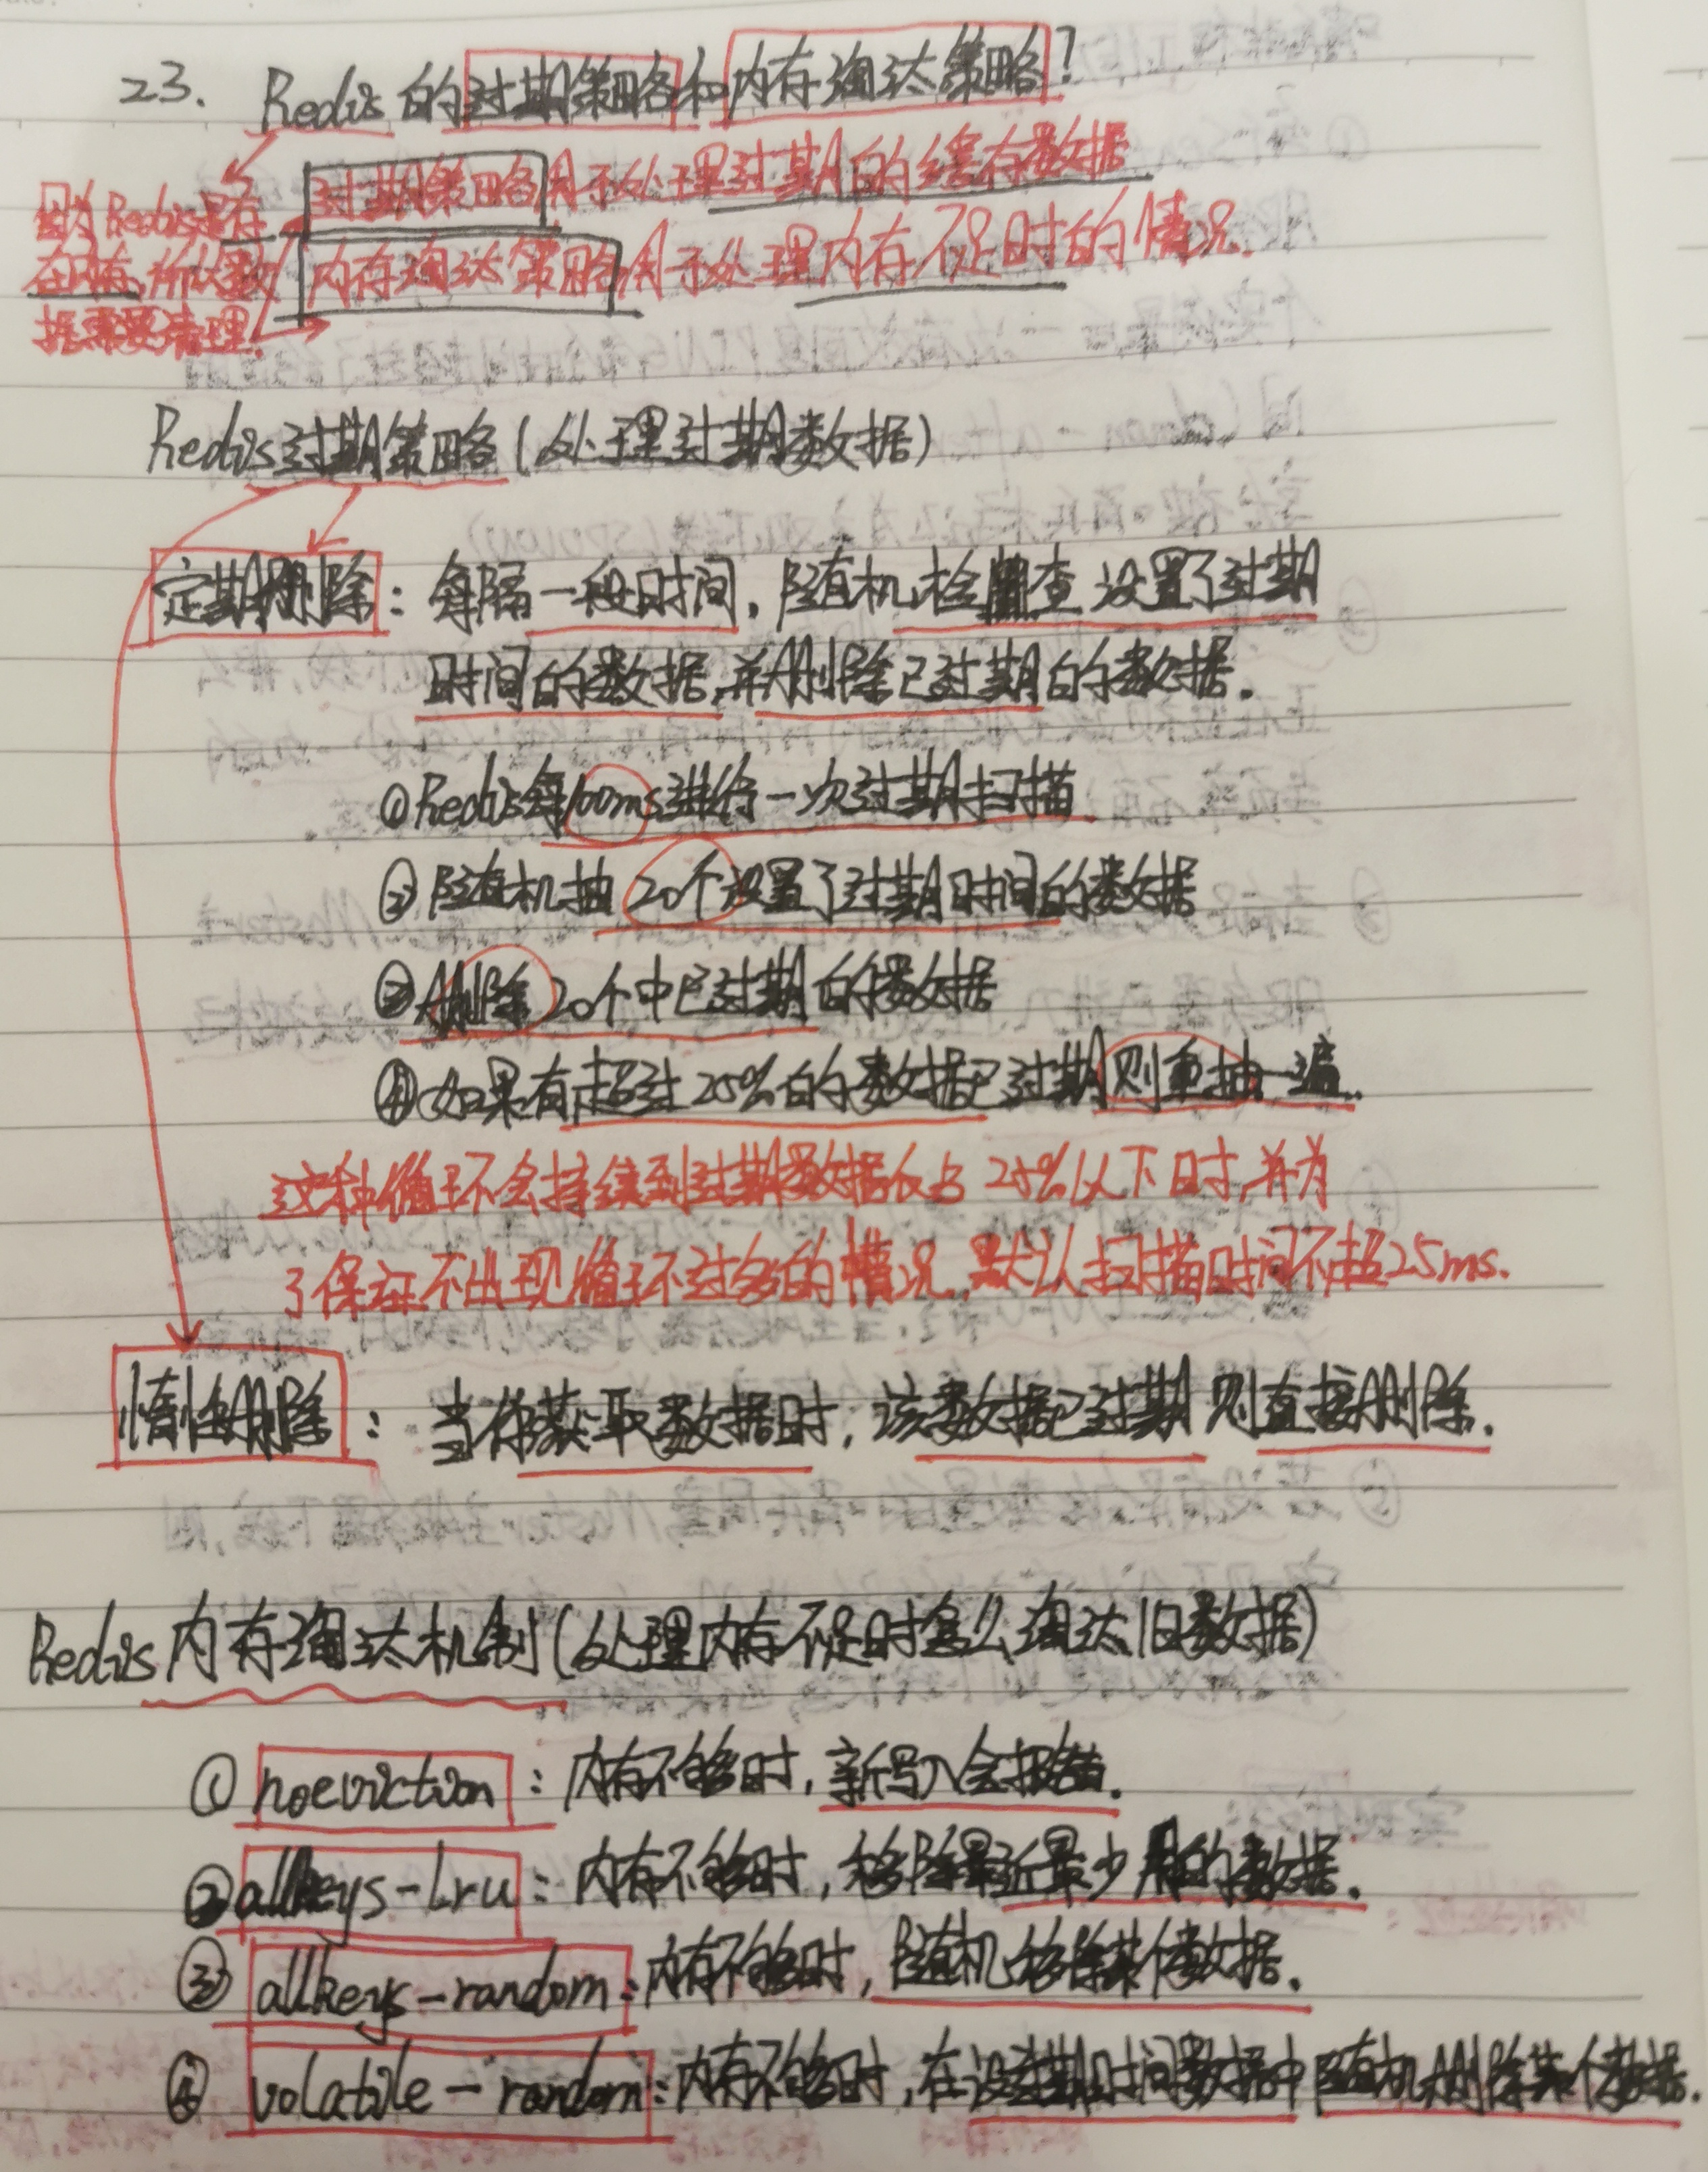 23. Redis的过期策略和内存淘汰策略？
过期策略用于处理过期的缓存数据
因为Redis是存
在内存,所以数
据需要清理.
内存淘汰策略用于处理内存不足时的情况.
Redis过期策略(处理过期数据)
定期删除：每隔一段时间,随机检查设置了过期
时间的数据,并删除已过期的数据.
①Redis每100ms进行一次过期扫描.
②随机抽20个设置了过期时间的数据
③删除20个中已过期的数据
④如果有超过25%的数据已过期则重抽一遍.
这种循环会持续到过期数据仅占25%以下时,并为
了保证不出现循环过多的情况,默认扫描时间不超25ms.
惰性删除：当你获取数据时,该数据已过期则直接删除.
Redis内存淘汰机制(处理内存不足时怎么淘汰旧数据)
①noeviction：内存不够时,新写入会报错.
②allkeys-lru：内存不够时,移除最近最少用的数据.
③allkeys-random：内存不够时,随机移除某个数据.
④volatile-random：内存不够时,在设过期时间数据中随机删除某个数据.